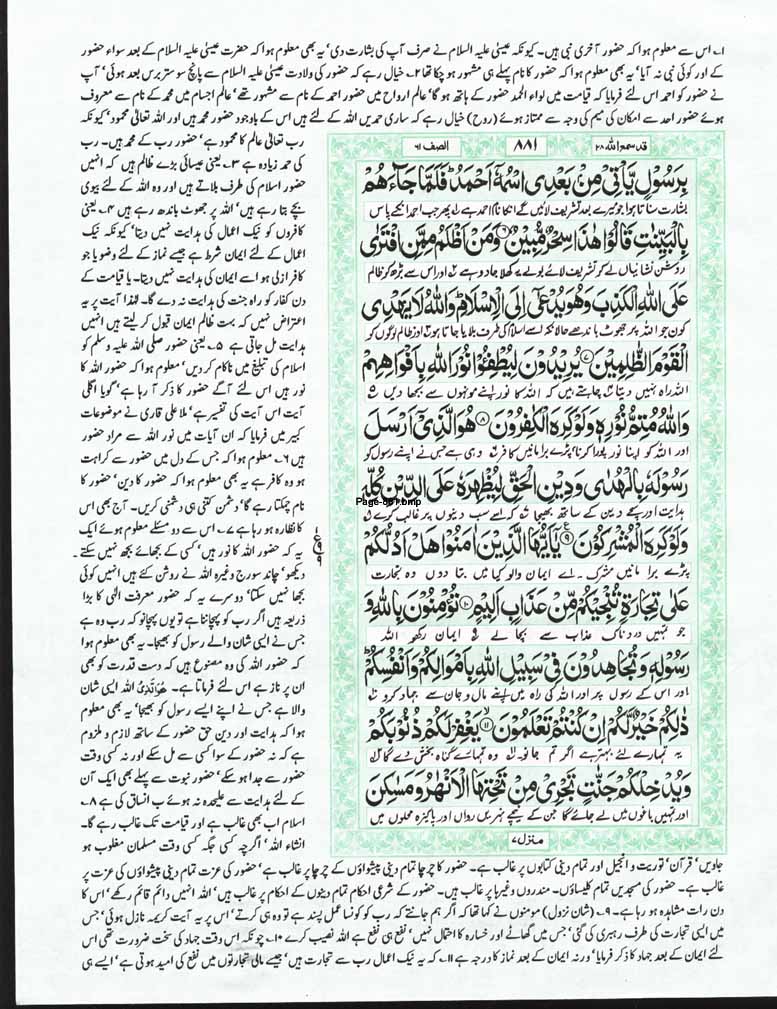 ۱۔ اس سے معلوم ہوا کہ حضور آخری نبی ہیں۔ کیونکہ عیسیٰ علیہ السلام نے صرف آپ کی بشارت دی' یہ بھی معلوم ہوا کہ حضرت عیسیٰ علیہ السلام کے بعد سواء حضور
کے اور کوئی نبی نہ آیا' یہ بھی معلوم ہوا کہ حضور کا نام پہلے ہی مشہور ہو چکا تھا ۲۔ خیال رہے کہ حضور کی ولادت عیسیٰ علیہ السلام سے پانچ سو ستر برس بعد ہوئی' آپ
نے حضور کو احمد اس لئے فرمایا کہ قیامت میں لواء الحمد حضور کے ہاتھ ہو گا' عالم ارواح میں حضور احمد کے نام سے مشہور تھے' عالم اجسام میں محمد کے نام سے معروف
ہوئے حضور احد سے امکان کی میم کی وجہ سے ممتاز ہوئے (روح) خیال رہے کہ ساری حمدیں اللہ کے لئے ہیں اس کے باوجود حضور محمد ہیں اور اللہ تعالیٰ محمود' کیونکہ
رب تعالیٰ عالم کا محمود ہے' حضور رب کے محمد ہیں۔ رب
کی حمد زیادہ ہے ۳۔ یعنی عیسائی بڑے ظالم ہیں کہ انہیں
حضور اسلام کی طرف بلاتے ہیں اور وہ اللہ کے لئے بیوی
بچے بتا رہے ہیں' اللہ پر جھوٹ باندھ رہے ہیں ۴۔ یعنی
کافروں کو نیک اعمال کی ہدایت نہیں دیتا' کیونکہ نیک
اعمال کے لئے ایمان شرط ہے جیسے نماز کے لئے وضو یا جو
کافر ازلی ہو اسے ایمان کی ہدایت نہیں دیتا۔ یا قیامت کے
دن کفار کو راہ جنت کی ہدایت نہ دے گا۔ لہٰذا آیت پر یہ
اعتراض نہیں کہ بہت ظالم ایمان قبول کر لیتے ہیں انہیں
ہدایت مل جاتی ہے ۵۔ یعنی حضور صلی اللہ علیہ وسلم کو
اسلام کی تبلیغ میں ناکام کر دیں' معلوم ہوا کہ حضور اللہ کا
نور ہیں اس لئے آگے حضور کا ذکر آ رہا ہے' گویا اگلی
آیت اس آیت کی تفسیر ہے' ملا علی قاری نے موضوعات
کبیر میں فرمایا کہ ان آیات میں نور اللہ سے مراد حضور
ہیں ۶۔ معلوم ہوا کہ جس کے دل میں حضور سے کراہت
ہو وہ کافر ہے یہ بھی معلوم ہوا کہ حضور کا دین' حضور کا
نام چمکتا رہے گا' دشمن کتنی ہی دشمنی کریں۔ آج بھی اس
کا نظارہ ہو رہا ہے ۷۔ اس سے دو مسئلے معلوم ہوئے ایک
یہ کہ حضور اللہ کا نور ہیں' کسی کے بجھائے بجھ نہیں سکتے
دیکھو' چاند سورج وغیرہ اللہ نے روشن کئے ہیں انہیں کوئی
بجھا نہیں سکتا' دوسرے یہ کہ حضور معرفت الٰہی کا بڑا
ذریعہ ہیں اگر رب کو پہچاننا ہے تو یوں پہچانو کہ رب وہ ہے
جس نے ایسی شان والے رسول کو بھیجا۔ یہ بھی معلوم ہوا
کہ حضور اللہ کی وہ مصنوع ہیں کہ دست قدرت کو بھی
ان پر ناز ہے اس لئے فرماتا ہے۔ هُوَالَّذِیْ اللہ ایسی شان
والا ہے جس نے اپنے ایسے رسول کو بھیجا' یہ بھی معلوم
ہوا کہ ہدایت اور دین حق حضور کے ساتھ لازم و ملزوم
ہے کہ نہ حضور کے سوا کسی سے مل سکے اور نہ کسی وقت
حضور سے جدا ہو سکے' حضور نبوت سے پہلے بھی ایک آن
کے لئے ہدایت سے علیحدہ نہ ہوئے
اسلام اب بھی غالب ہے اور قیامت تک غالب رہے گا۔
انشاء اللہ' اگرچہ کسی جگہ کسی وقت مسلمان مغلوب ہو
قد سمع اللہ ۲۸
۸۸۱
الصف ۶۱
بِرَسُوْلٍ يَّاْتِيْ مِنْۢ بَعْدِي اسْمُهٗۤ اَحْمَدُ ؕ فَلَمَّا جَآءَهُمْ
بشارت سناتا ہوا جو میرے بعد تشریف لائیں گے انکا نام احمد ہے پھر جب احمد انکے پاس
بِالْبَيِّنٰتِ قَالُوْا هٰذَا سِحْرٌ مُّبِيْنٌ ۶ وَمَنْ اَظْلَمُ مِمَّنِ افْتَرٰى
روشن نشانیاں لے کر تشریف لائے بولے یہ کھلا جادو ہے اور اس سے بڑھ کر ظالم
عَلَى اللّٰهِ الْكَذِبَ وَهُوَ يُدْعٰۤى اِلَى الْاِسْلَامِ ؕ وَاللّٰهُ لَا يَهْدِي
کون جو اللہ پر جھوٹ باندھے حالانکہ اسے اسلام کی طرف بلایا جاتا ہو اور ظالم لوگوں کو
الْقَوْمَ الظّٰلِمِيْنَ ۷ يُرِيْدُوْنَ لِيُطْفِـُٔوْا نُوْرَ اللّٰهِ بِاَفْوَاهِهِمْ
اللہ راہ نہیں دیتا چاہتے ہیں کہ اللہ کا نور اپنے مونہوں سے بجھا دیں
وَاللّٰهُ مُتِمُّ نُوْرِهٖ وَلَوْ كَرِهَ الْكٰفِرُوْنَ ۸ هُوَ الَّذِيْۤ اَرْسَلَ
اور اللہ کو اپنا نور پورا کرنا پڑے برا مانیں کافر وہی ہے جس نے اپنے رسول کو
رَسُوْلَهٗ بِالْهُدٰى وَدِيْنِ الْحَقِّ لِيُظْهِرَهٗ عَلَى الدِّيْنِ كُلِّهٖ
Page-881.bmp
ہدایت اور سچے دین کے ساتھ بھیجا کہ اسے سب دینوں پر غالب کرے
وَلَوْ كَرِهَ الْمُشْرِكُوْنَ ۹ يٰۤاَيُّهَا الَّذِيْنَ اٰمَنُوْا هَلْ اَدُلُّكُمْ
پڑے برا مانیں مشرک۔ اے ایمان والو کیا میں بتا دوں وہ تجارت
عَلٰى تِجَارَةٍ تُنْجِيْكُمْ مِّنْ عَذَابٍ اَلِيْمٍ ۱۰ تُؤْمِنُوْنَ بِاللّٰهِ وَ
جو تمہیں دردناک عذاب سے بچالے ایمان رکھو اللہ
رَسُوْلِهٖ وَتُجَاهِدُوْنَ فِيْ سَبِيْلِ اللّٰهِ بِاَمْوَالِكُمْ وَاَنْفُسِكُمْ ؕ
اور اس کے رسول پر اور اللہ کی راہ میں اپنے مال و جان سے جہاد کرو
ذٰلِكُمْ خَيْرٌ لَّكُمْ اِنْ كُنْتُمْ تَعْلَمُوْنَ ۱۱ يَغْفِرْ لَكُمْ ذُنُوْبَكُمْ
یہ تمہارے لئے بہتر ہے اگر تم جانو وہ تمہارے گناہ بخش دے گا
وَيُدْخِلْكُمْ جَنّٰتٍ تَجْرِيْ مِنْ تَحْتِهَا الْاَنْهٰرُ وَمَسٰكِنَ
اور تمہیں باغوں میں لے جائے گا جن کے نیچے نہریں رواں اور پاکیزہ محلوں میں
منزل ۷
جاویں' قرآن' توریت و انجیل اور تمام دینی کتابوں پر غالب ہے۔ حضور کا چرچا تمام دینی پیشواؤں کے چرچا پر غالب ہے' حضور کی عزت تمام دینی پیشواؤں کی عزت پر
غالب ہے۔ حضور کی مسجدیں تمام کلیساؤں۔ مندروں وغیرہا پر غالب ہیں۔ حضور کے شرعی احکام تمام دینوں کے احکام پر غالب ہیں' اللہ انہیں دائم قائم رکھے' اس کا
دن رات مشاہدہ ہو رہا ہے۔ ۹۔ (شان نزول) مومنوں نے کہا تھا کہ اگر ہم جانتے کہ رب کو کونسا عمل پسند ہے تو وہ ہی کرتے' اس پر یہ آیت کریمہ نازل ہوئی' جس
میں ایسی تجارت کی طرف رہبری کی گئی' جس میں گھاٹے اور خسارہ کا احتمال نہیں' نفع ہی نفع ہے اللہ نصیب کرے ۱۰۔ چونکہ اس وقت جہاد کی سخت ضرورت تھی اس
لئے ایمان کے بعد جہاد کا ذکر فرمایا' ورنہ ایمان کے بعد نماز کا درجہ ہے ۱۱۔ کہ یہ نیک اعمال رب سے تجارت ہیں' جیسے مالی تجارتوں میں نفع کی امید ہوتی ہے' ایسے ہی